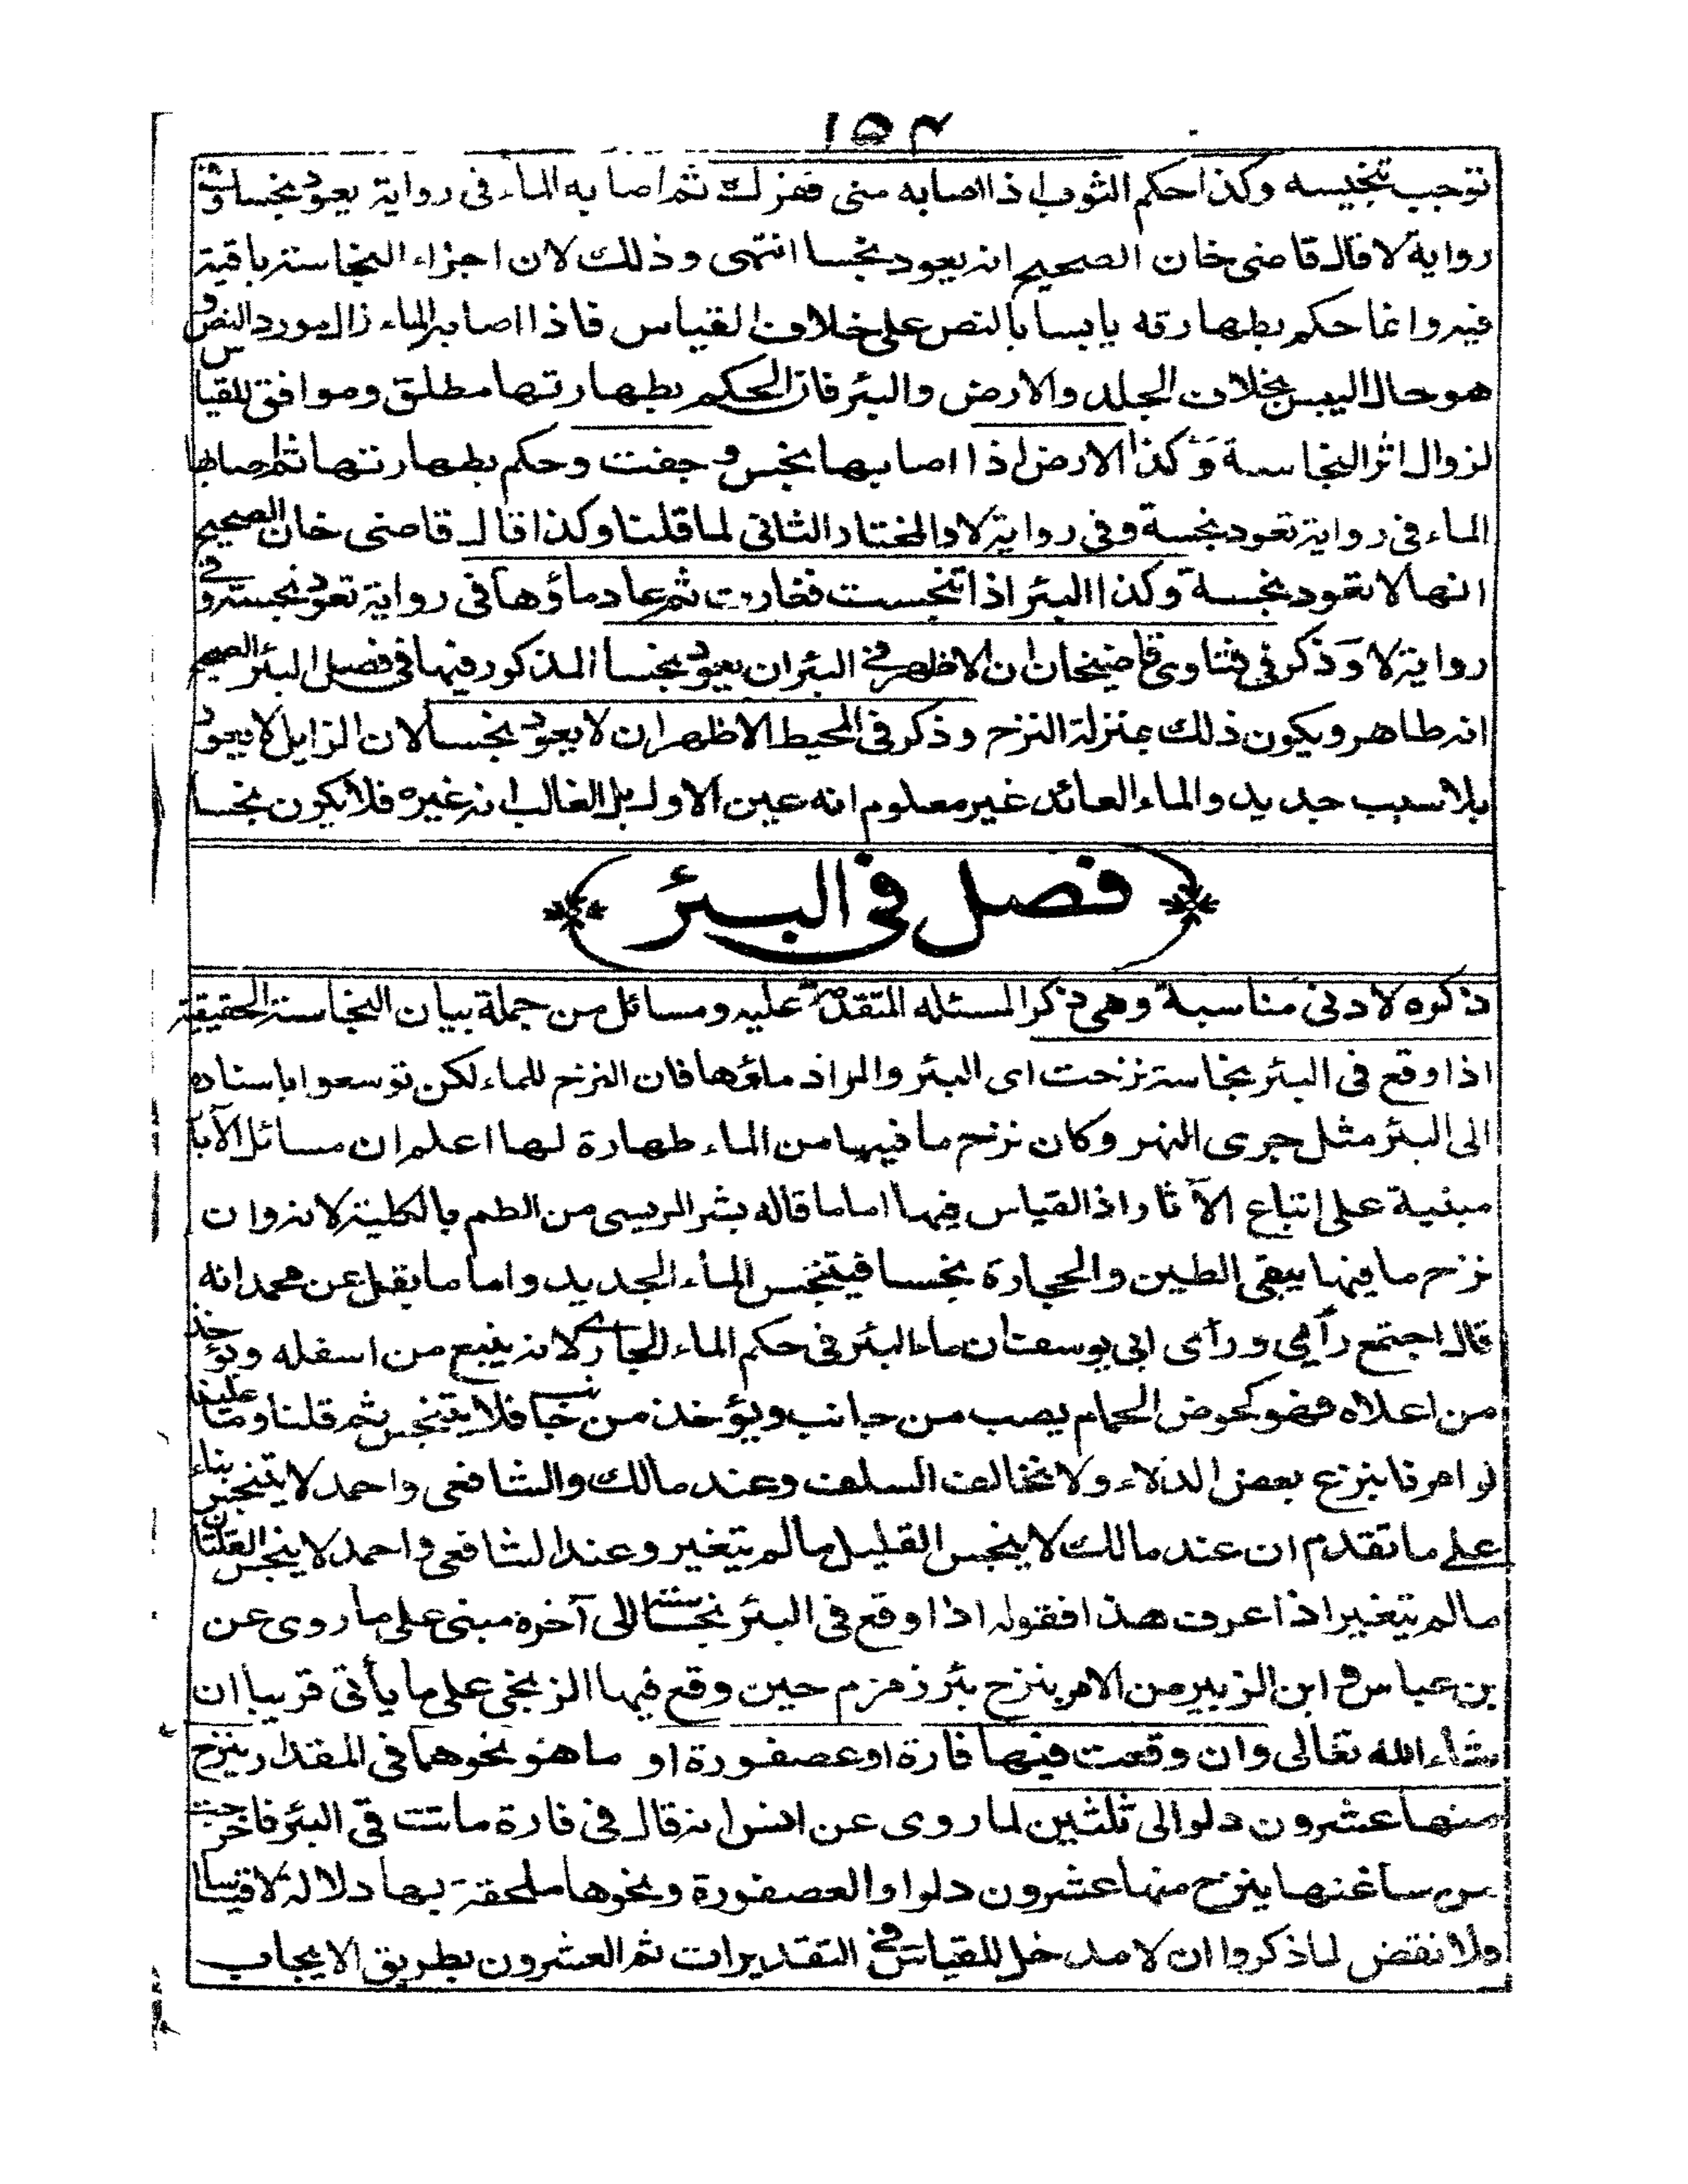 ١٥٤
توجب تنجيسه وكذا حكم الثوب اذا اصابه منى ففرك ثم اصابه الماء فى رواية يعود نجسا وفى
رواية لا قال قاضى خان الصحيح انه يعود نجسا انتهى وذلك لان اجزاء النجاسة باقية
فيه وانما حكم بطهارته يابسا بالنص على خلاف القياس فاذا اصابه الماء زال مورد النص و
هو حال اليبس بخلاف الجلد والارض والبئر فان الحكم بطهارتها مطلق وموافق للقياس
لزوال اثر النجاسة وكذا الارض اذا اصابها نجس وجفت وحكم بطهارتها ثم اصابها
الماء فى رواية تعود نجسة وفى رواية لا والمختار الثانى لما قلنا وكذا قال قاضى خان الصحيح
انها لا تعود نجسة وكذا البئر اذا تنجست فغارت ثم عاد ماؤها فى رواية تعود نجسة وفى
رواية لا وذكر فى فتاوى قاضيخان ان الاظهر فى البئر ان يعود نجسا المذكور فيها فى فصل البئر الصحيح
انه طاهر ويكون ذلك بمنزلة النزح وذكر فى المحيط الاظهر ان لا يعود نجسا لان الزايل لا يعود
بلا سبب جديد والماء العائد غير معلوم انه عين الاول بل الغالب انه غيره فلا يكون نجسا
فصل فى البئر
ذكره لادنى مناسبة وهى ذكر المسئله المتقدمة عليه ومسائل من جملة بيان النجاسة الحقيقية
اذا وقع فى البئر نجاسة نزحت اى البئر والمراد ماؤها فان النزح للماء لكن توسعوا باسناده
الى البئر مثل جرى النهر وكان نزح ما فيها من الماء طهارة لها اعلم ان مسائل الآبار
مبنية على اتباع الآثار اذ القياس فيها اما ما قاله بشر المريسى من الطم بالكلية لانه وان
نزح ما فيها يبقى الطين والحجارة نجسا فيتنجس الماء الجديد واما ما نقل عن محمد انه
قال اجتمع رأيى ورأى ابى يوسف ان ماء البئر فى حكم الماء الجارى لانه ينبع من اسفله ويؤخذ
من اعلاه فهو كحوض الحمام يصب من جانب ويؤخذ من جانب فلا يتنجس ثم قلنا وما علينا
لو امرنا بنزح بعض الدلاء ولا نخالف السلف وعند مالك والشافعى واحمد لا يتنجس بناء
على ما تقدم ان عند مالك لا ينجس القليل ما لم يتغير وعند الشافعى واحمد لا ينجس القلتان
ما لم يتغير اذا عرفت هذا فقوله اذا وقع فى البئر نجاسة الى آخره مبنى على ما روى عن
بن عباس و ابن الزبير من الامر بنزح بئر زمزم حين وقع فيها الزنجى على ما يأتى قريبا ان
شاء الله تعالى وان وقعت فيها فارة او عصفورة او ما هو نحوهما فى المقدار ينزح
منها عشرون دلوا الى ثلثين لما روى عن انس انه قال فى فارة ماتت فى البئر فاخرجت
من ساعتها ينزح منها عشرون دلوا والعصفورة ونحوها ملحقة بها دلالة لا قياسا
ولا نقض لما ذكروا ان لا مدخل للقياس فى التقديرات ثم العشرون بطريق الايجاب